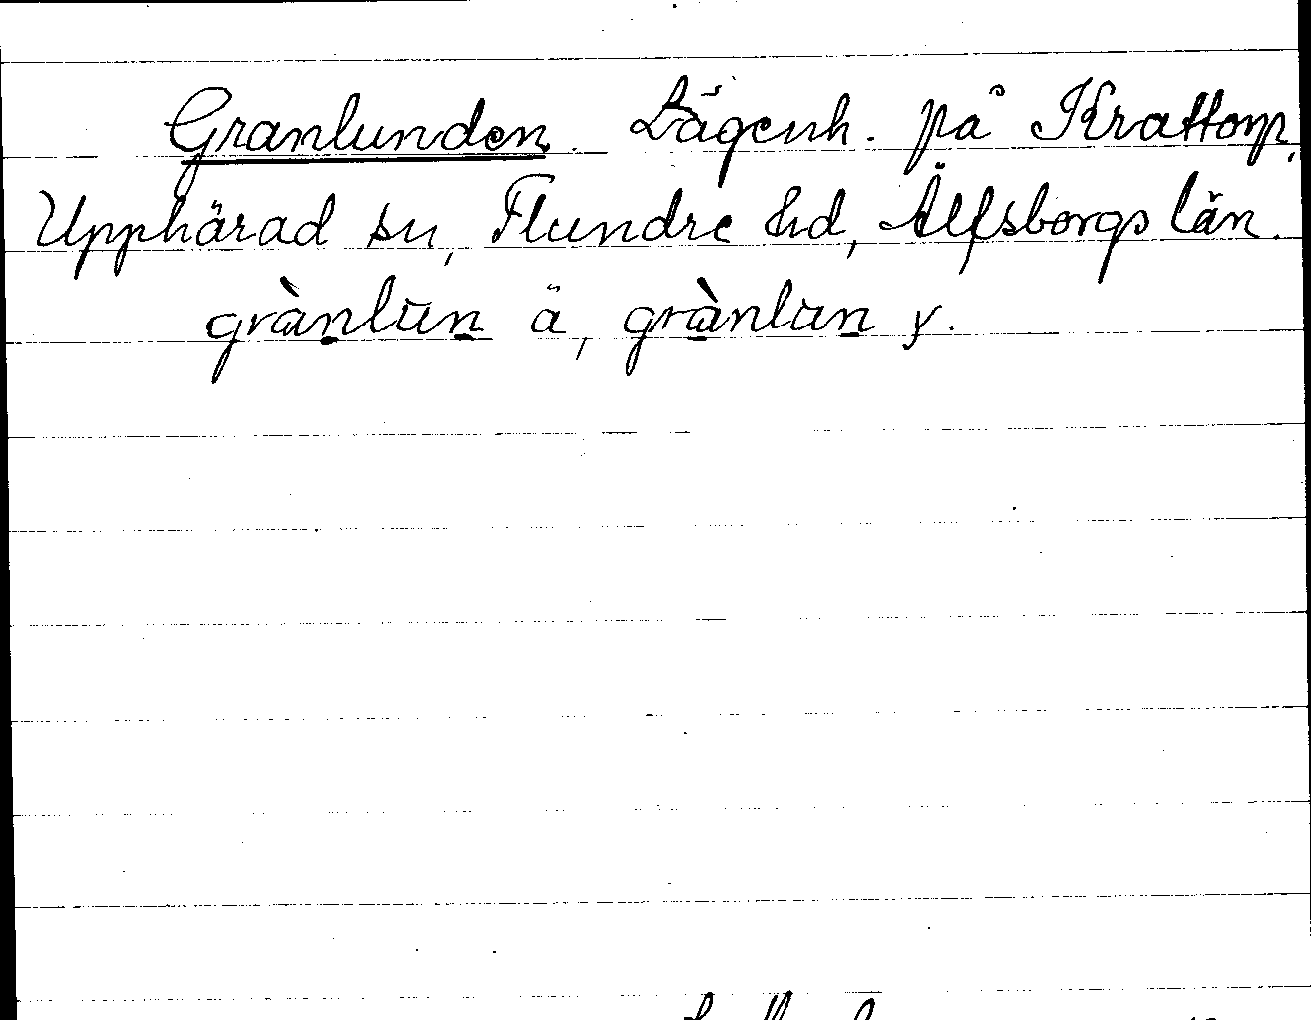 Granlunden. Lägenh. på Krattorp,
Upphärad sn, Flundre hd, Älfsborgs län.
grànlun ä, grànlun y.